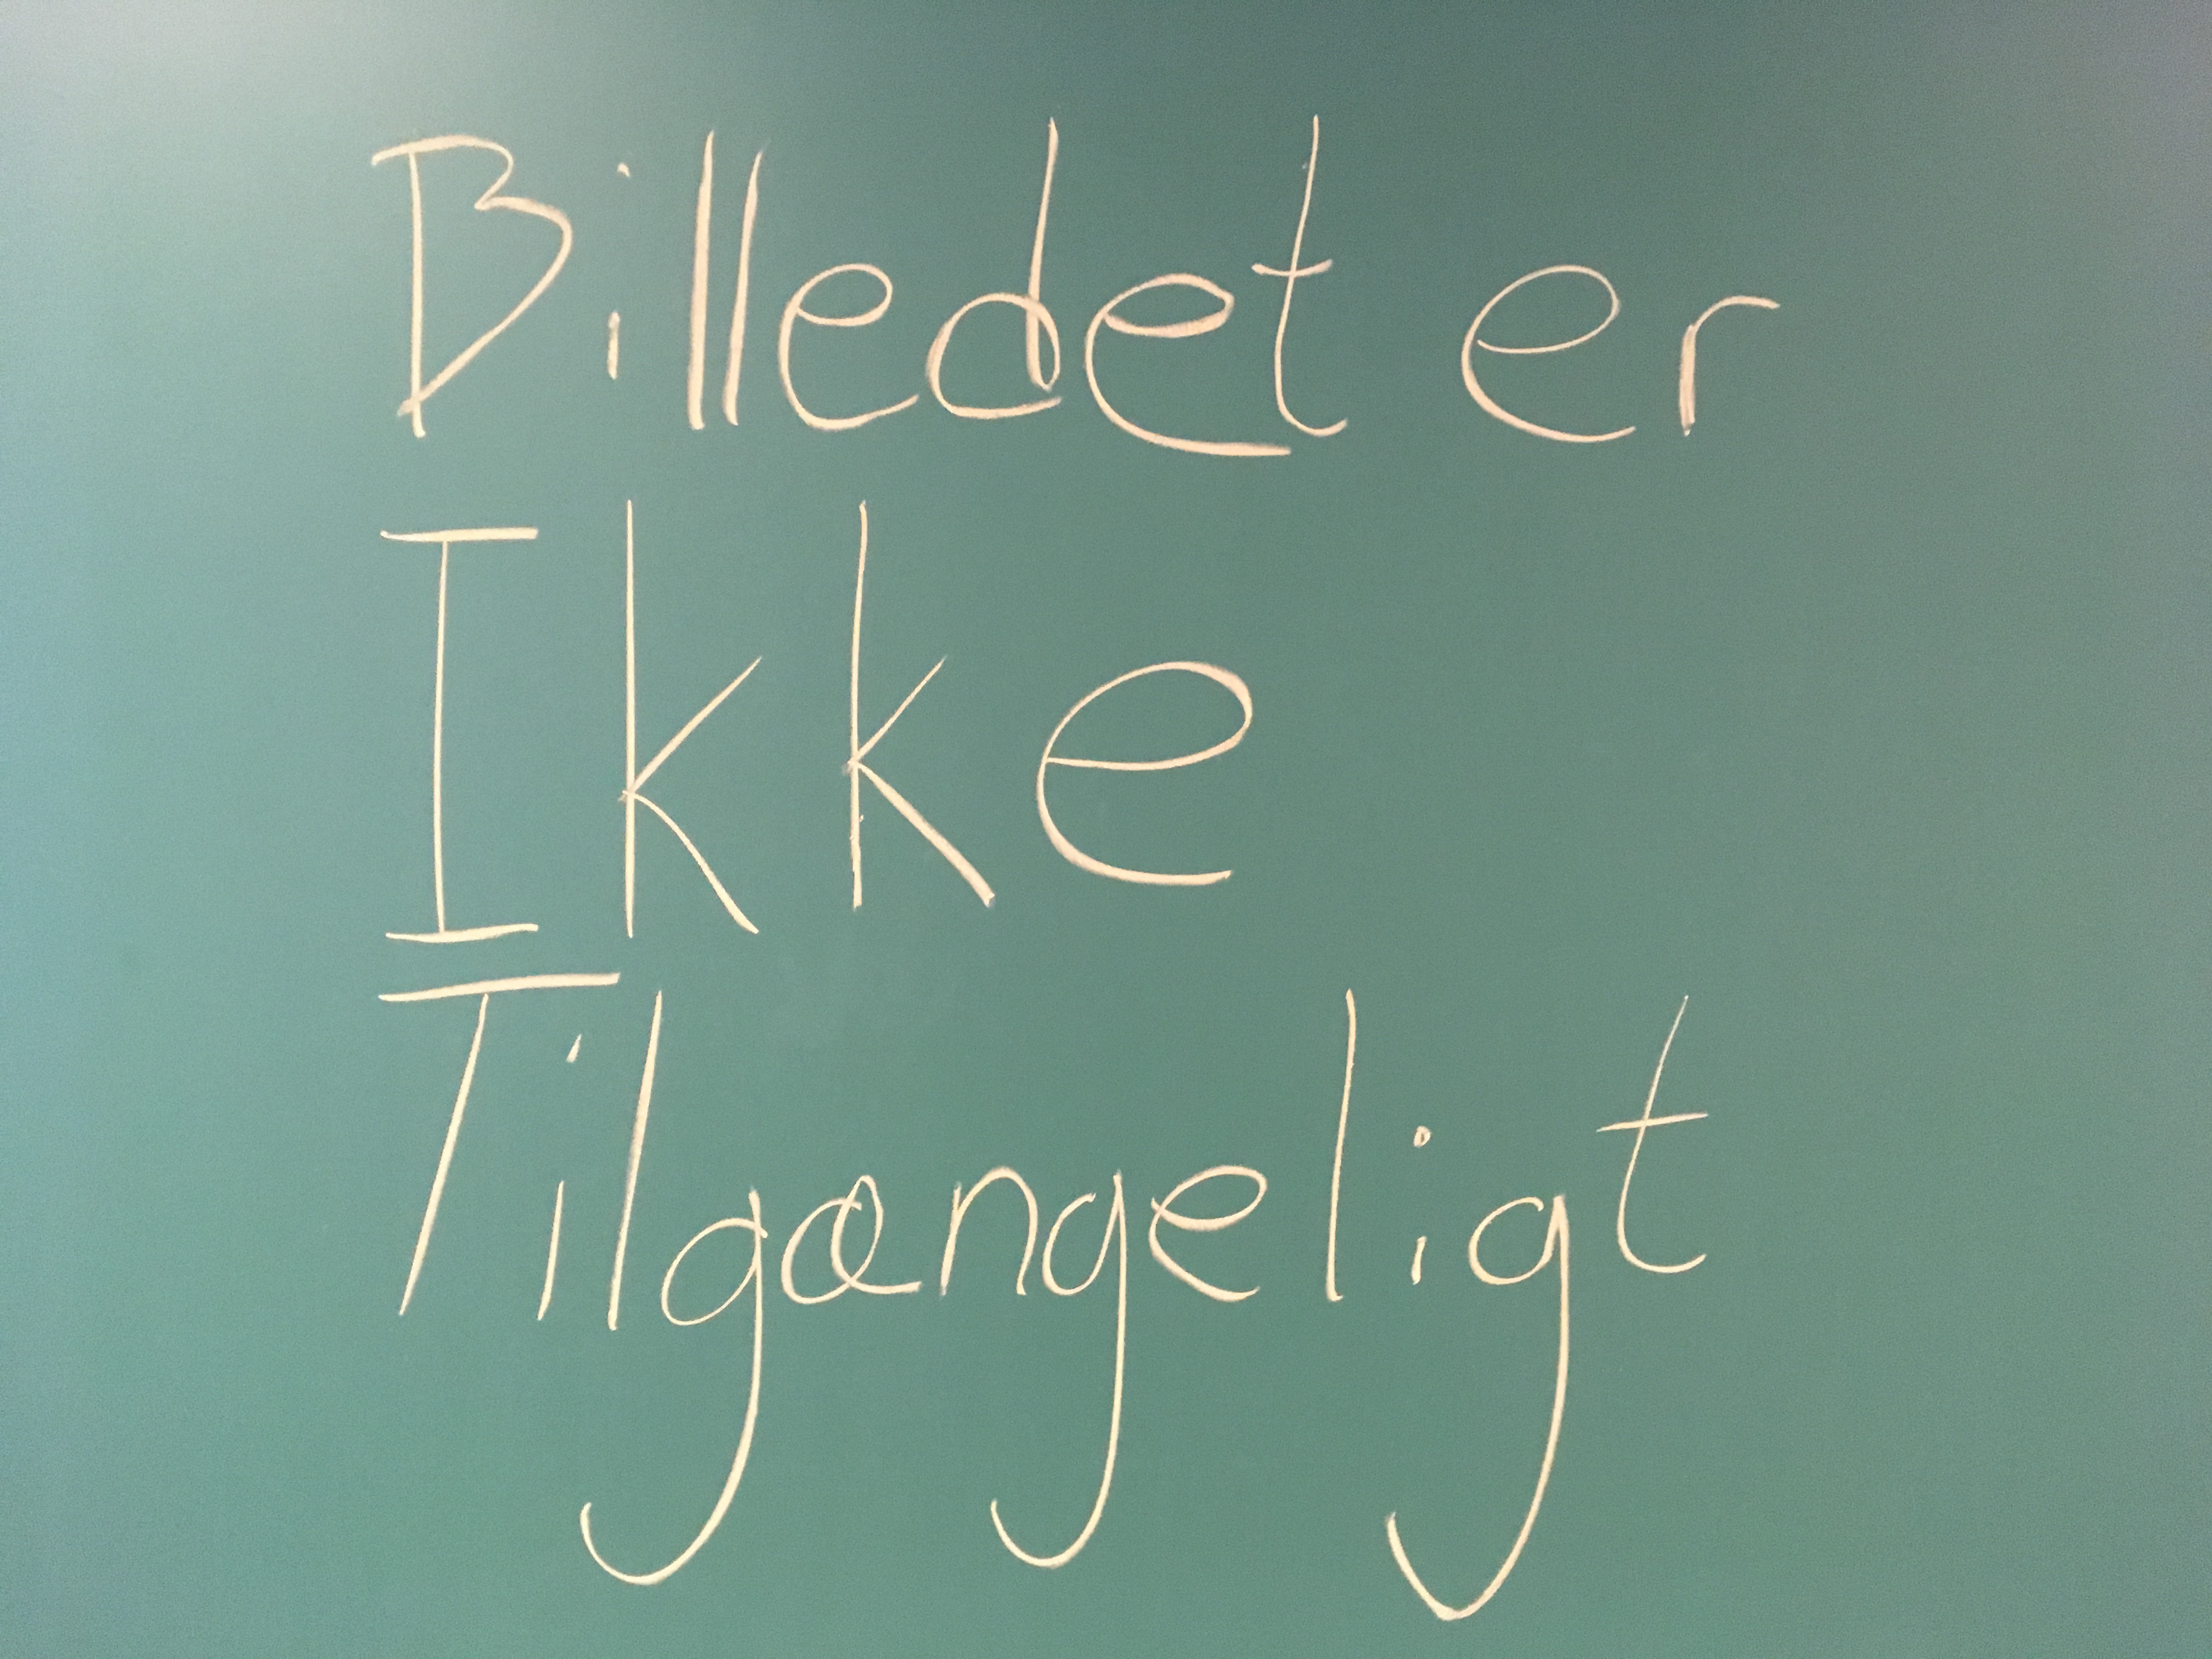 Billedet er
Ikke
Tilgængeligt